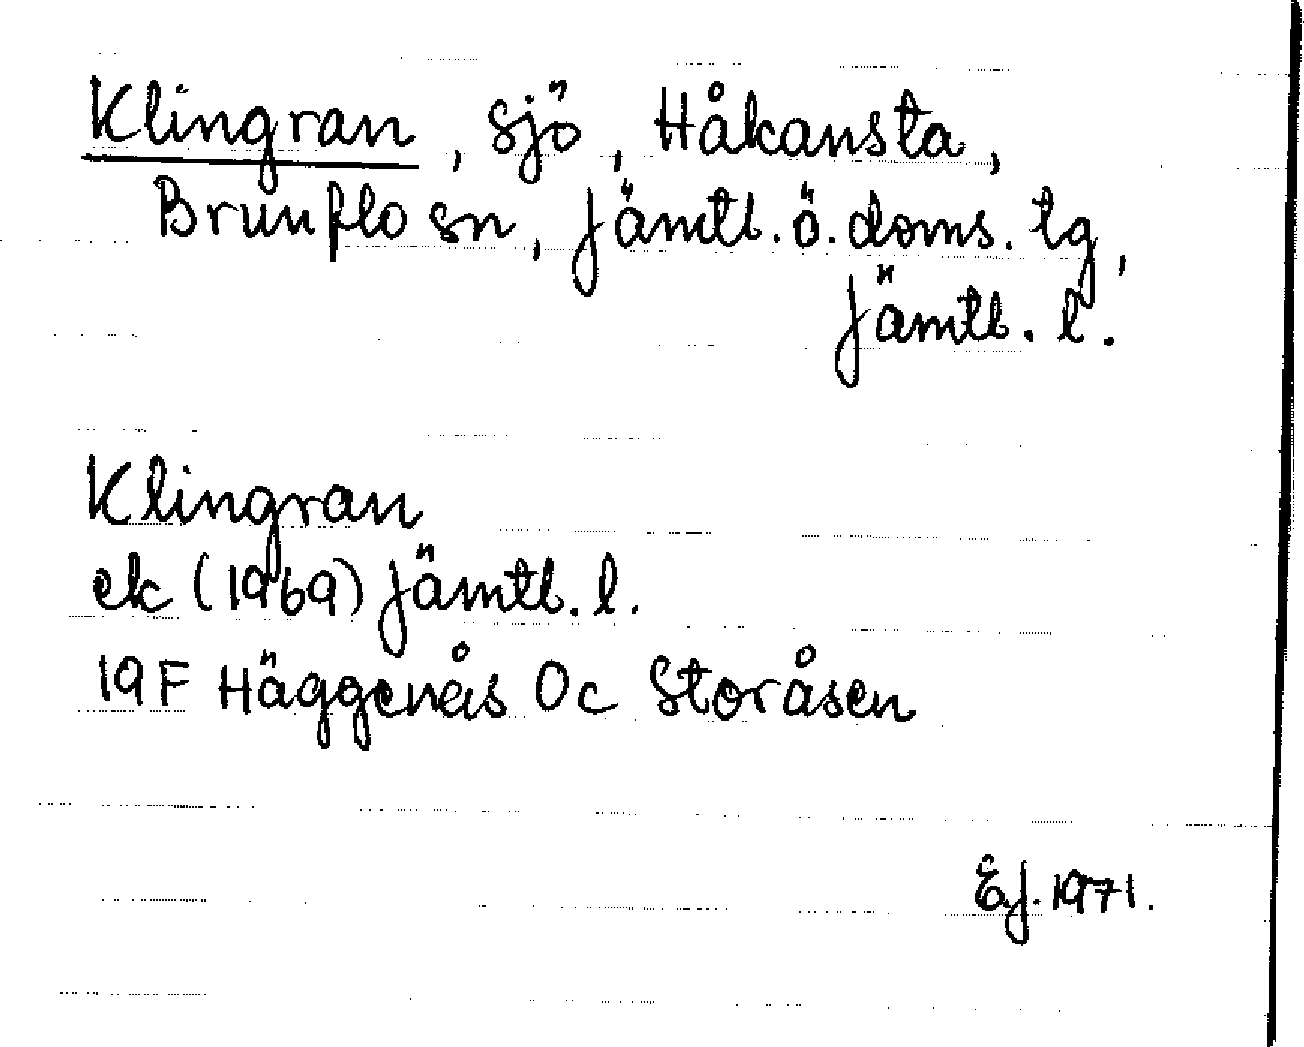 Klingran, sjö, Håkansta,
Brunflo sn, Jämtl. ö. doms. tg,
Jämtl. l.
Klingran
ek (1969) Jämtl. l.
19F Häggenås 0c Storåsen
E.J. 1971.